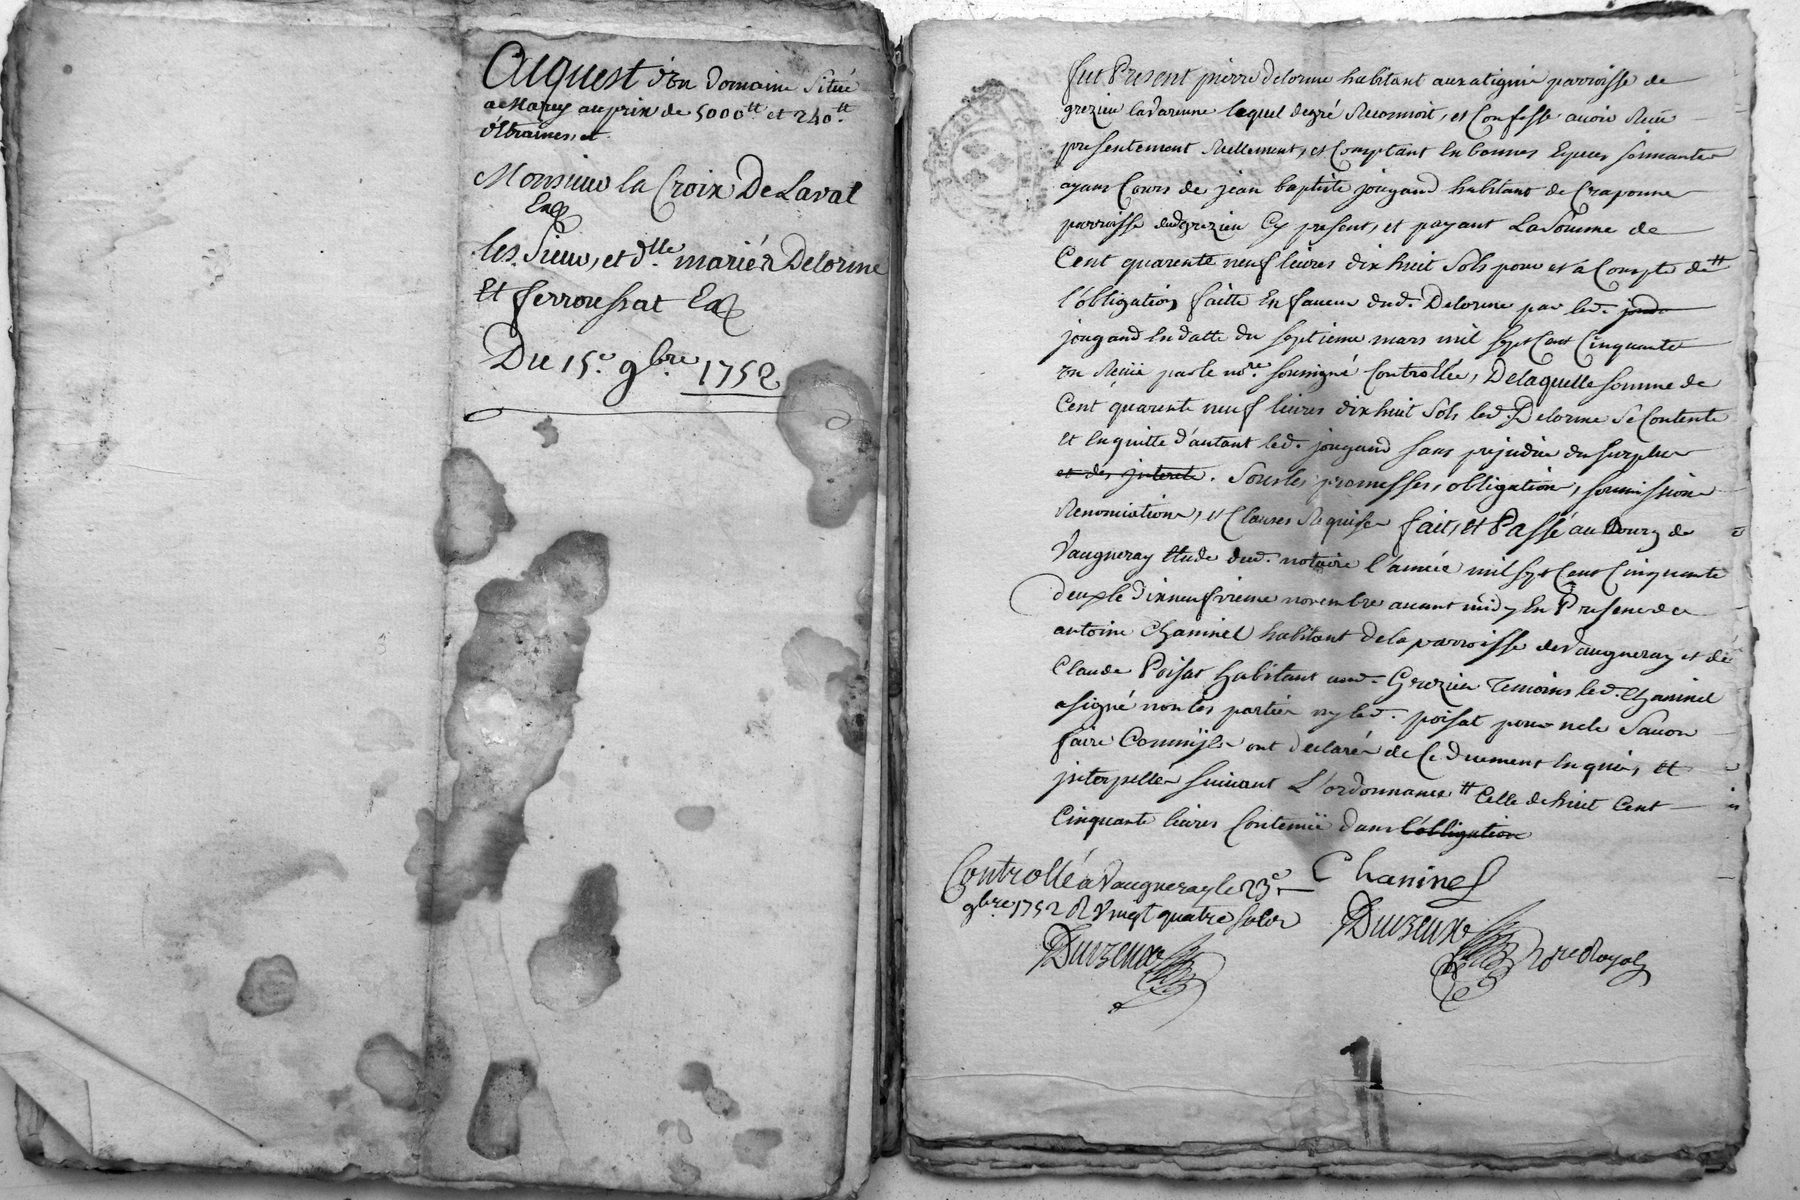 Acquest d'un Domaine Situé
a Marcy au prix de 5000tt et 240tt
d'Etraines, et
Monsieur la Croix De Laval
Les Sieur, et dlle mariés Delorme
Et ferroussat
Du 15e 9bre 1752
fut Present pierre delorme habitant aux atignie parroisse de
grezieu lavarenne lequel degré Reconnoit, et Confesse avoir Reçu
presentement Réellement, et Comptant en bonnes Especes sonnantes
ayans Cours de jean baptiste jougand habitant de Craponne
parroisse dud. grezieu Cy present, et payant La Somme de
Cent quarente neuf livres dix huit Sols pour et a Compte de tt
l'obligation faitte En faveur dud. Delorme par led.
jougand En datte du septieme mars mil sept Cent Cinquante
un Reçüe par le nore. soussigné Controllée, De laquelle somme de
Cent quarente neuf livres dix huit Sols led. Delorme Se Contente
et En quitte d'autant led. jougand sans prejudice du surplus
et des interets. Sous les promesses, obligation, soumissions
Renonciations, et Clauses Requises fait, et Passé au Bourg de
Vaugneray Etude dud. notaire l'année mil sept Cent Cinquante
deux le dixneufvieme novembre avant midy En Presence de
antoine Chaninel habitant de la parroisse de Vaugneray et de
Claude Poisat habitant aud. Grezieu Temoins led. Chaninel
a signé non les parties ny led. poisat pour ne le Scavoir
faire Comm'ils ont declarés de Ce Duement Enquis, et
interpellés suivant L'ordonnance tt Celle de huit Cent
Cinquante livres Contenüe dans l'obligation
Controllé a Vaugneray le 23e
9bre 1752 R vingt quatre solds
Chaninel
Duvzeux
Duvzeux nore Royal